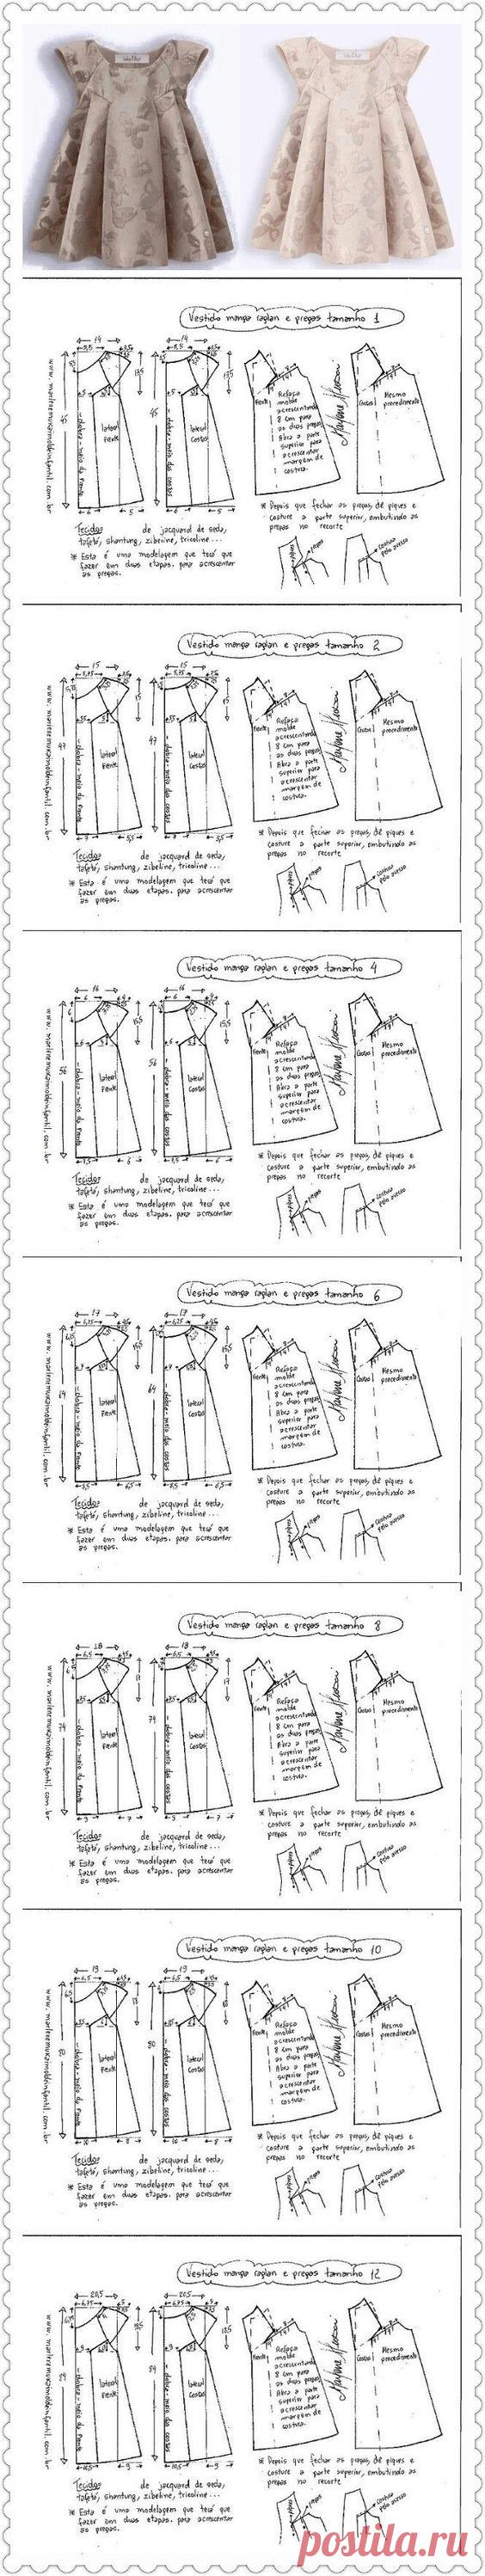 Vestido manga raglan e pregas tamanho 1
14
14
5,5
5,5
13,5
13,5
45
45
5
5
www.marlenemukaimoldeinfantil.com.br
dobra - meio da frente
lateral
frente
dobra - meio das costas
lateral
costas
6
5
6
5
Frente
Refaça
molde
acrescentando
8 cm para
as duas pregas
Abra a parte
superior para
acrescentar
margem de
costura.
Marlene Mukai
Costas
Mesmo
procedimento
Tecidos de jacquard de seda,
tafetá, shantung, zibeline, tricoline...
* Esta é uma modelagem que terá que
fazer em duas etapas. para acrescentar
as pregas.
* Depois que fechar as pregas, dê piques e
costure a parte superior, embutindo as
pregas no recorte
pregas
costura
pelo avesso
Vestido manga raglan e pregas tamanho 2
15
15
5,75
5,75
15
15
47
47
www.marlenemukaimoldeinfantil.com.br
dobra - meio da frente
lateral
frente
dobra - meio das costas
lateral
costas
7
5,5
7
5,5
Frente
Refaça
molde
acrescentando
8 cm para
as duas pregas
Abra a parte
superior para
acrescentar
margem de
costura.
Marlene Mukai
Costas
Mesmo
procedimento
Tecidos de jacquard de seda,
tafetá, shantung, zibeline, tricoline...
* Esta é uma modelagem que terá que
fazer em duas etapas. para acrescentar
as pregas.
* Depois que fechar as pregas, dê piques e
costure a parte superior, embutindo as
pregas no recorte
pregas
costura
pelo avesso
Vestido manga raglan e pregas tamanho 4
16
16
6
6
15,5
15,5
56
56
6
6
www.marlenemukaimoldeinfantil.com.br
dobra - meio da frente
lateral
frente
dobra - meio das costas
lateral
costas
7,5
6
7,5
6
Frente
Refaça
molde
acrescentando
8 cm para
as duas pregas
Abra a parte
superior para
acrescentar
margem de
costura.
Marlene Mukai
Costas
Mesmo
procedimento
Tecidos de jacquard de seda,
tafetá, shantung, zibeline, tricoline...
* Esta é uma modelagem que terá que
fazer em duas etapas. para acrescentar
as pregas.
* Depois que fechar as pregas, dê piques e
costure a parte superior, embutindo as
pregas no recorte
pregas
costura
pelo avesso
Vestido manga raglan e pregas tamanho 6
17
17
6,25
6,25
64
64
www.marlenemukaimoldeinfantil.com.br
dobra - meio da frente
lateral
frente
dobra - meio das costas
lateral
costas
8,5
6,5
8,5
6,5
Frente
Refaça
molde
acrescentando
8 cm para
as duas pregas
Abra a parte
superior para
acrescentar
margem de
costura.
Marlene Mukai
Costas
Mesmo
procedimento
Tecidos de jacquard de seda,
tafetá, shantung, zibeline, tricoline...
* Esta é uma modelagem que terá que
fazer em duas etapas. para acrescentar
as pregas.
* Depois que fechar as pregas, dê piques e
costure a parte superior, embutindo as
pregas no recorte
pregas
costura
pelo avesso
Vestido manga raglan e pregas tamanho 8
18
18
6,5
6,5
17
17
74
74
www.marlenemukaimoldeinfantil.com.br
dobra - meio da frente
lateral
frente
dobra - meio das costas
lateral
costas
9
7
9
7
Frente
Refaça
molde
acrescentando
8 cm para
as duas pregas
Abra a parte
superior para
acrescentar
margem de
costura.
Marlene Mukai
Costas
Mesmo
procedimento
Tecidos de jacquard de seda,
tafetá, shantung, zibeline, tricoline...
* Esta é uma modelagem que terá que
fazer em duas etapas. para acrescentar
as pregas.
* Depois que fechar as pregas, dê piques e
costure a parte superior, embutindo as
pregas no recorte
pregas
costura
pelo avesso
Vestido manga raglan e pregas tamanho 10
19
19
6,5
6,5
80
80
www.marlenemukaimoldeinfantil.com.br
dobra - meio da frente
lateral
frente
dobra - meio das costas
lateral
costas
10
8
10
8
Frente
Refaça
molde
acrescentando
8 cm para
as duas pregas
Abra a parte
superior para
acrescentar
margem de
costura.
Marlene Mukai
Costas
Mesmo
procedimento
Tecidos de jacquard de seda,
tafetá, shantung, zibeline, tricoline...
* Esta é uma modelagem que terá que
fazer em duas etapas. para acrescentar
as pregas.
* Depois que fechar as pregas, dê piques e
costure a parte superior, embutindo as
pregas no recorte
pregas
costura
pelo avesso
Vestido manga raglan e pregas tamanho 12
20,5
20,5
6,75
6,75
84
84
www.marlenemukaimoldeinfantil.com.br
dobra - meio da frente
lateral
frente
dobra - meio das costas
lateral
costas
10,5
9
10,5
9
Frente
Refaça
molde
acrescentando
8 cm para
as duas pregas
Abra a parte
superior para
acrescentar
margem de
costura.
Marlene Mukai
Costas
Mesmo
procedimento
Tecidos de jacquard de seda,
tafetá, shantung, zibeline, tricoline...
* Esta é uma modelagem que terá que
fazer em duas etapas. para acrescentar
as pregas.
* Depois que fechar as pregas, dê piques e
costure a parte superior, embutindo as
pregas no recorte
pregas
costura
pelo avesso
postila.ru